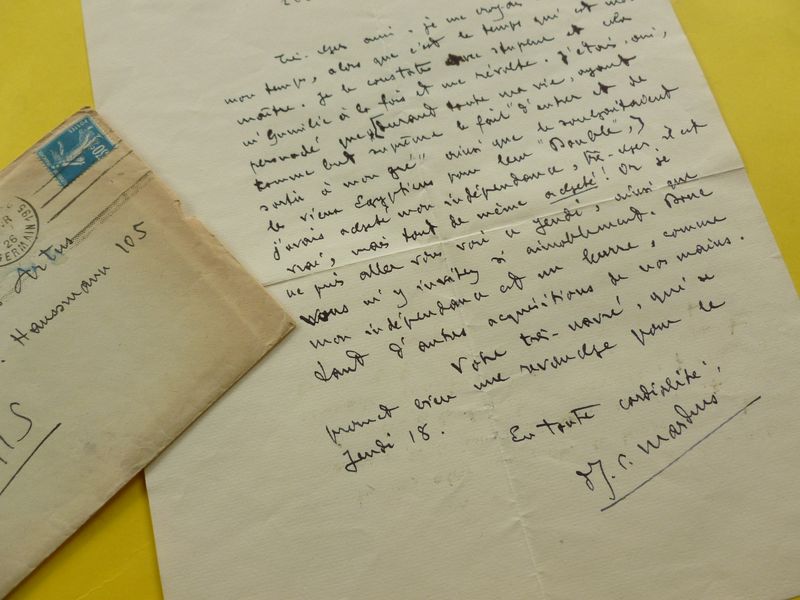 Très cher ami, je me croyais
mon temps, alors que c'est le temps qui est mon
maître. Je le constate avec stupeur et cela
m'humilie à la fois et me révolte. J'étais, oui,
persuadé que (durant toute ma vie, ayant
comme but suprême le fait "d'entrer et de
sortir à mon gré" ainsi que le souhaitaient
les vieux Égyptiens pour leur "Double",)
j'avais acheté mon indépendance, très-cher, il est
vrai, mais tout de même acheté! Or je
ne puis aller vous voir ce jeudi, ainsi que
vous m'y invitez si aimablement. Donc
mon indépendance est un leurre, comme
tant d'autres acquisitions de nos mains.
Votre très-navré, qui se
promet bien une revanche pour le
Jeudi 18.
En toute cordialité,
J. C. Mardrus
26
GERMAIN
Artus
Haussmann 105
IS